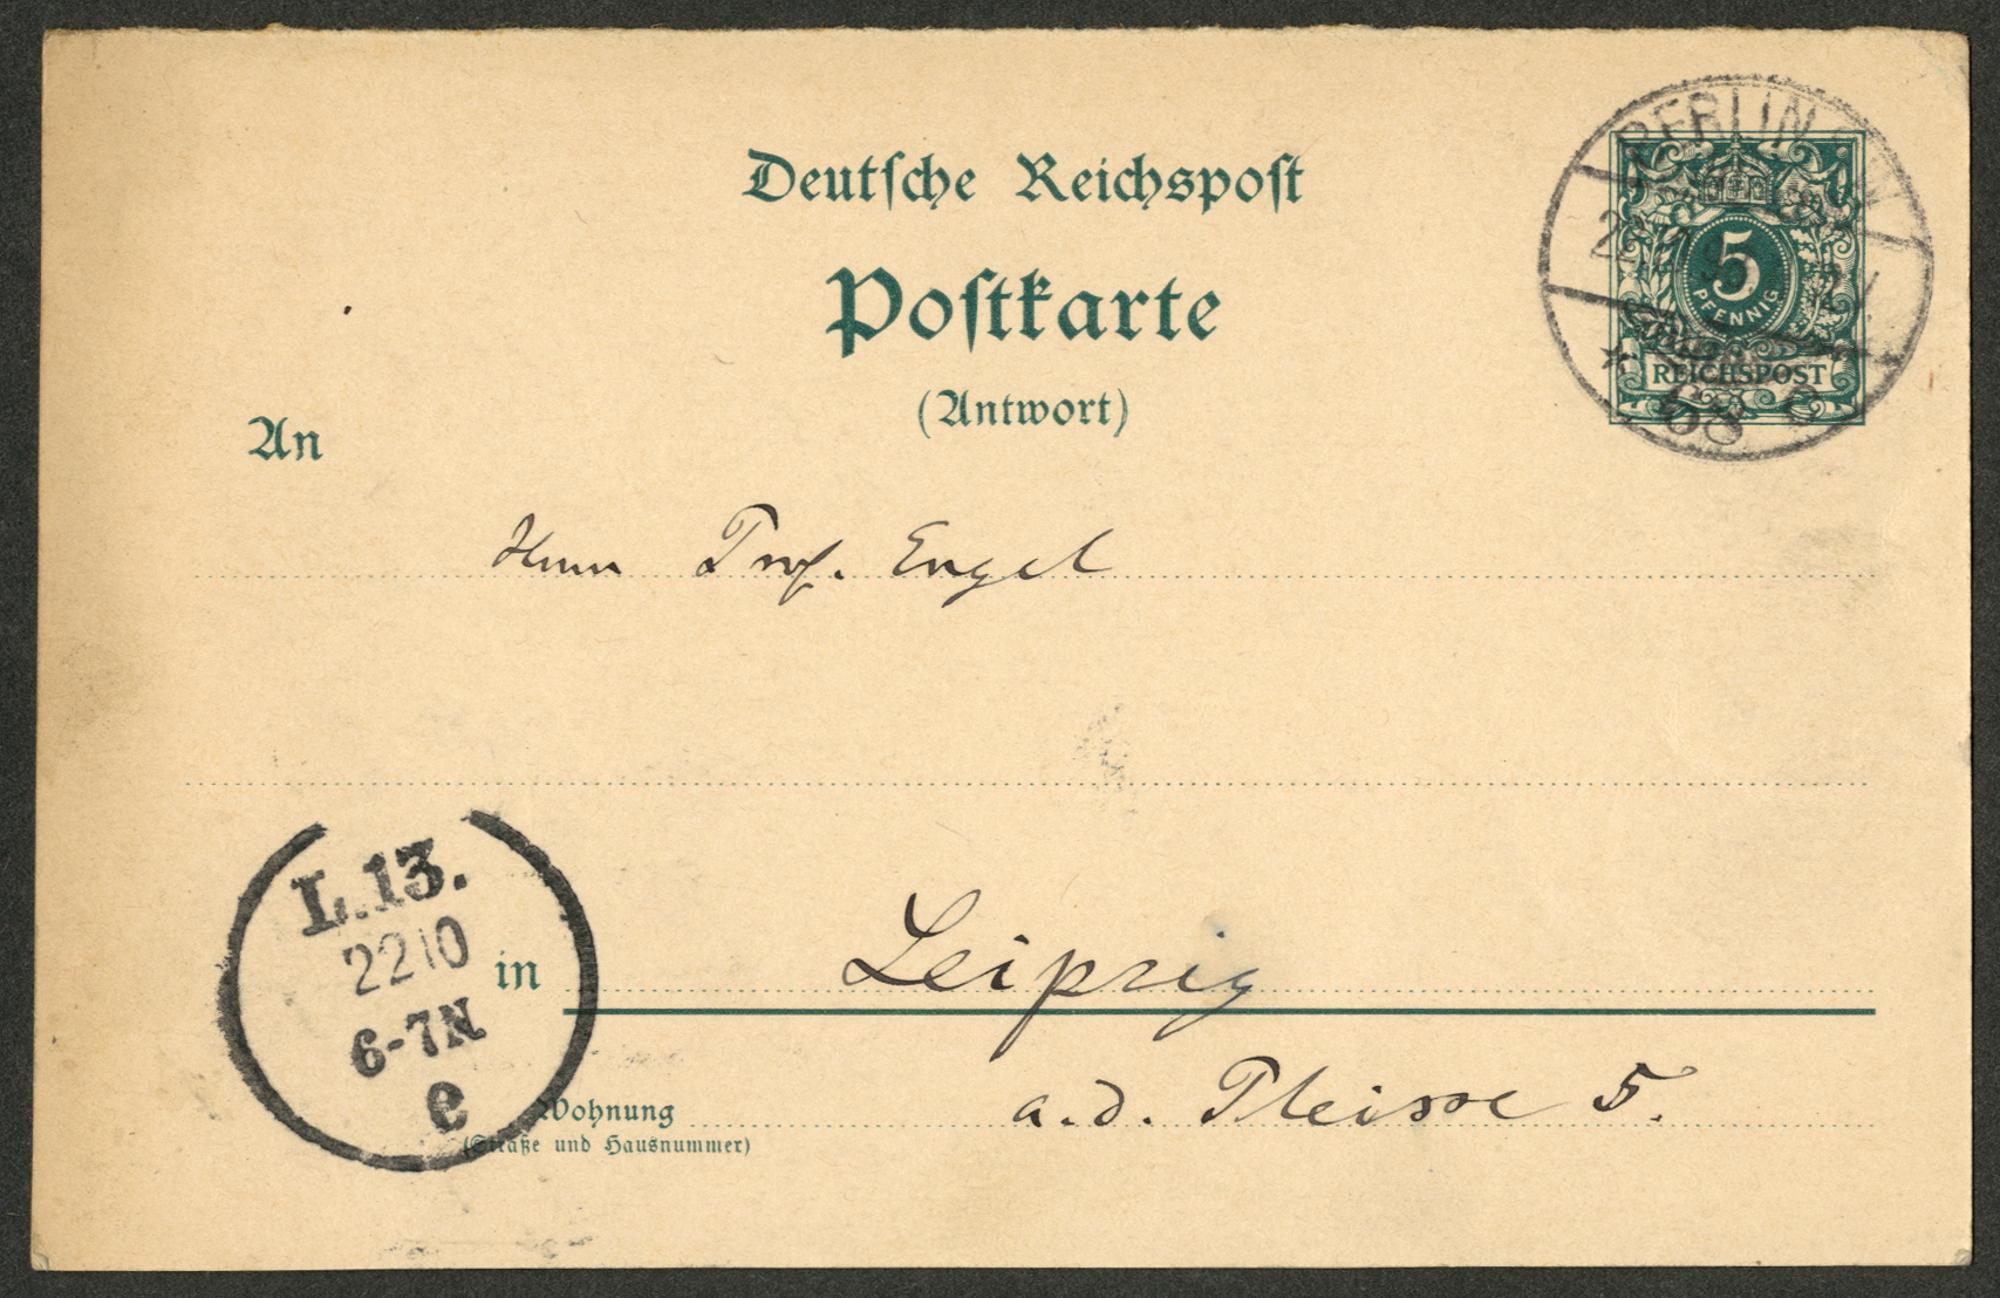 Deutsche Reichspost
Postkarte
(Antwort)
BERLIN SW
5
PFENNIG
REICHSPOST
* 68 *
An
Herrn Prof. Engel
L.13.
2210
6-7N
e
in Leipzig
Wohnung a. d. Pleisse 5.
(Straße und Hausnummer)